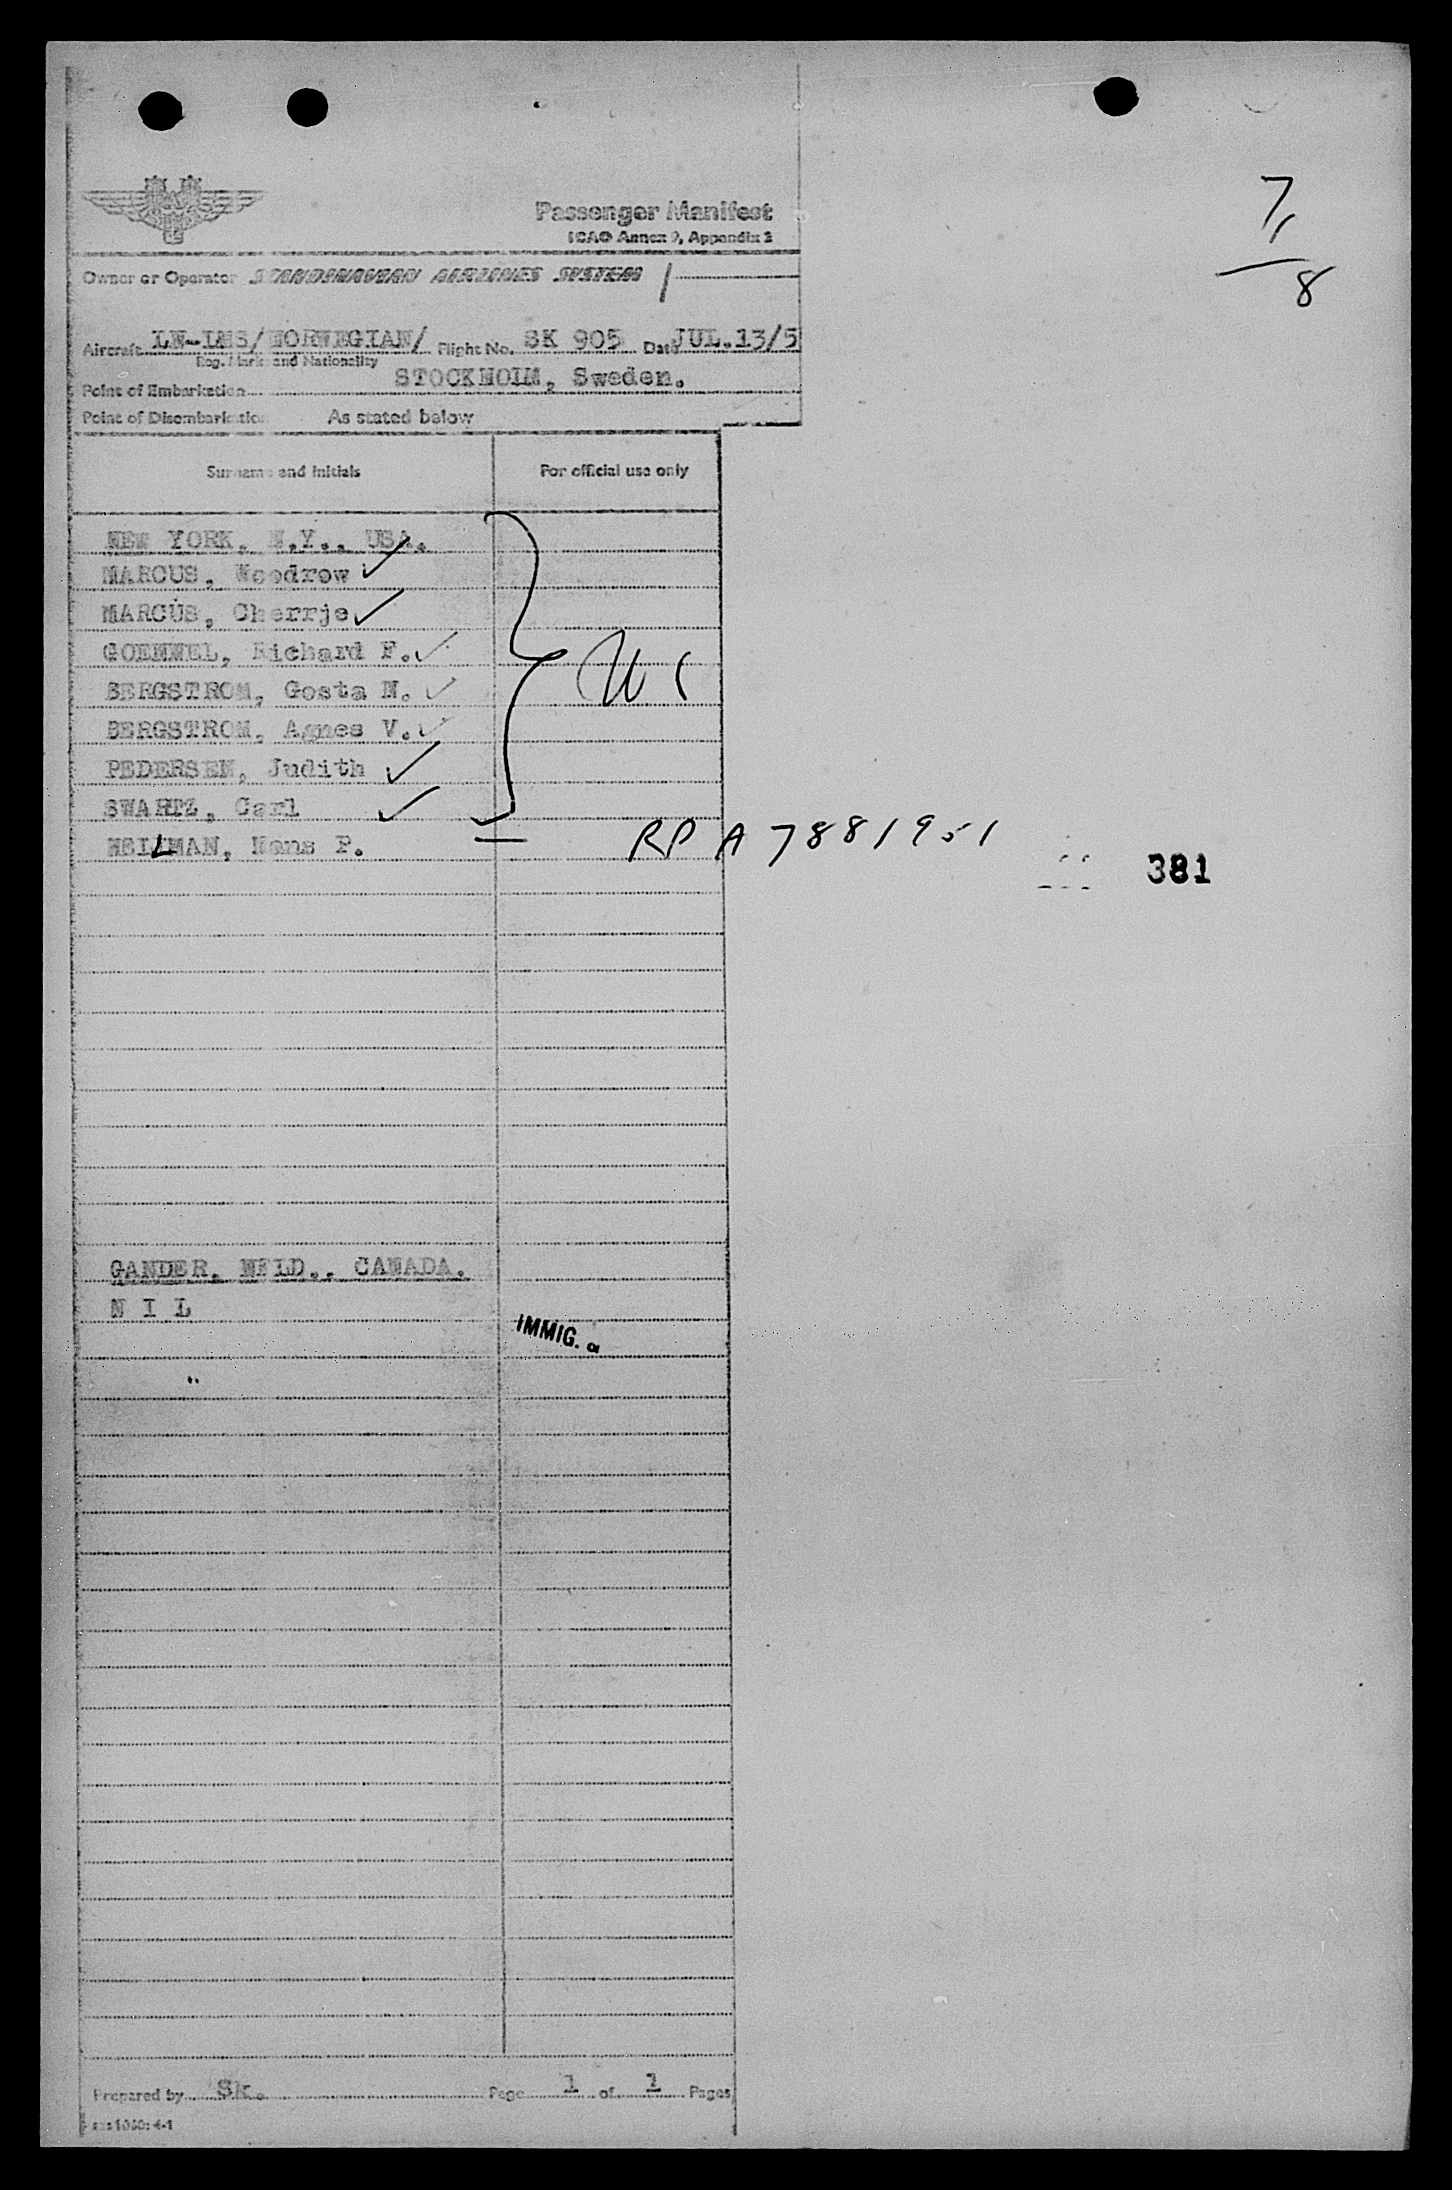 7/
8
Passenger Manifest
ICAO Annex 9, Appendix 2
Owner or Operator SCANDINAVIAN AIRLINES SYSTEM
Aircraft LN-LMS/NORWEGIAN/ Flight No. SK 905 Date JUL.13/5
Reg. Marks and Nationality
Point of Embarkation STOCKHOLM, Sweden.
Point of Disembarkation As stated below
Surname and initials For official use only
NEW YORK, N.Y., USA.
MARCUS, Woodrow
MARCUS, Cherrje
GOEMMEL, Richard F.
BERGSTROM, Gosta N.
BERGSTROM, Agnes V.
PEDERSEN, Judith
SWARTZ, Carl
Hans P. RP A 7881951
381
GANDER, NFLD., CANADA.
N I L
IMMIG. a
Prepared by SK. Page 1 of 1 Pages